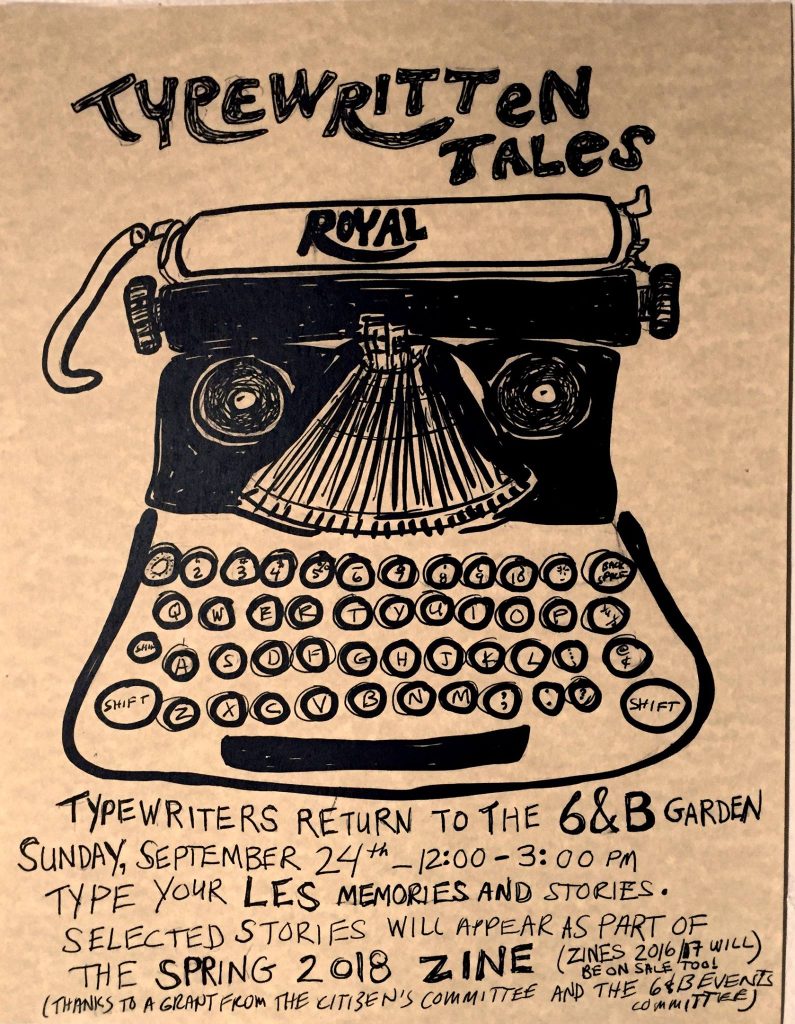 TYPEWRITTEN
TALES
ROYAL
2 3 4 5 6 8 9 10 BACK SPACE
Q W E R T Y U I O P
A S D F G H J K L
SHIFT Z X C V B N M SHIFT
TYPEWRITERS RETURN TO THE 6&B GARDEN
SUNDAY, SEPTEMBER 24th - 12:00 - 3:00 PM
TYPE YOUR LES MEMORIES AND STORIES.
SELECTED STORIES WILL APPEAR AS PART OF
THE SPRING 2018 ZINE (ZINES 2016/17 WILL)
BE ON SALE, TOO!
(THANKS TO A GRANT FROM THE CITIZEN'S COMMITTEE AND THE 6&B EVENTS
COMMITTEE)